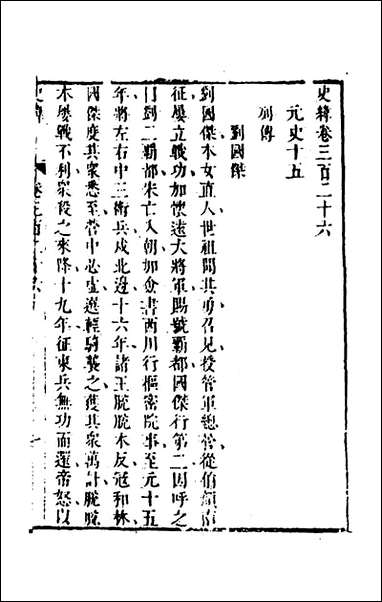 史緯卷三百二十六
元史十五
列傳
劉國傑
劉國傑本女直人世祖聞其勇召見授管軍總管從伯顏南
征屢立戰功加懷遠大將軍賜號霸都國傑行第二因呼之
曰劉二霸都宋亡入朝加僉書西川行樞密院事至元十五
年將左右中三衛兵戍北邊十六年諸王脫脫木反寇和林
國傑度其衆悉至營中必虛選輕騎襲之獲其衆萬計脫脫
木屢戰不利衆殺之來降十九年征東兵無功而還帝怒以
史緯